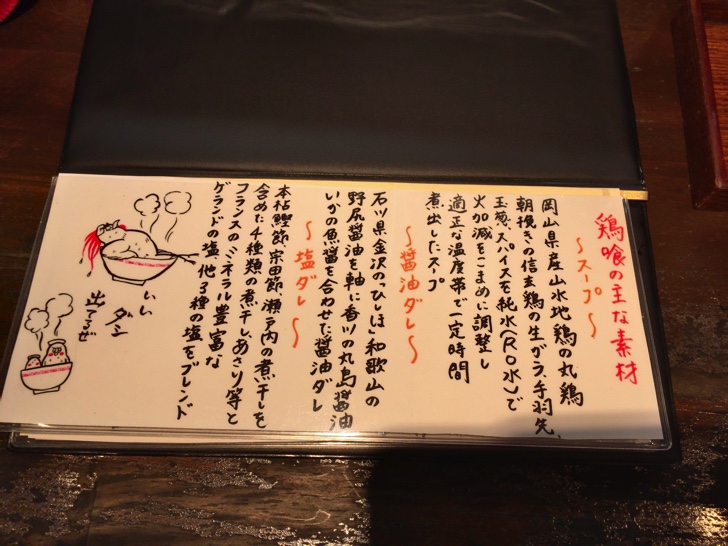 鶏喰の主な素材
～スープ～
岡山県産山水地鶏の丸鶏
朝挽きの信玄鶏の生ガラ、手羽先、
玉葱、スパイスを純水(RO水)で
火加減をこまめに調整し
適正な温度帯で一定時間
煮出したスープ
～醤油ダレ～
石川県金沢の「ひしほ」和歌山の
野尻醤油を軸に香川の丸島醤油
いかの魚醤を合わせた醤油ダレ
～塩ダレ～
本枯鰹節、宗田節、瀬戸内の煮干しを
含めた4種類の煮干し、あさり等と
フランスのミネラル豊富な
ゲランドの塩、他3種の塩をブレンド
いい
ダシ
出てるぜ